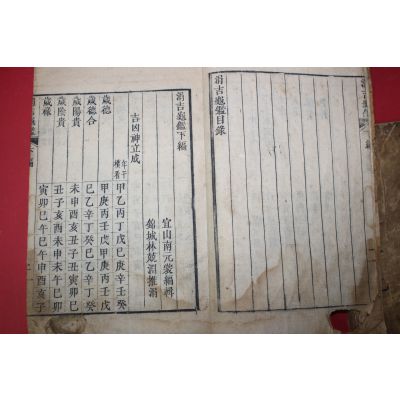 涓吉龜鑑目錄
涓吉龜鑑下編
宜山南元裳編輯
錦城林兢淵推涓
吉凶神立成
年干橫看 甲乙丙丁戊己庚辛壬癸
歲德 甲庚丙壬戊甲庚丙壬戊
歲德合 己乙辛丁癸己乙辛丁癸
歲陽貴 未申酉亥丑子丑寅卯巳
歲陰貴 丑子亥酉未申未午巳卯
歲祿 寅卯巳午巳午申酉亥子